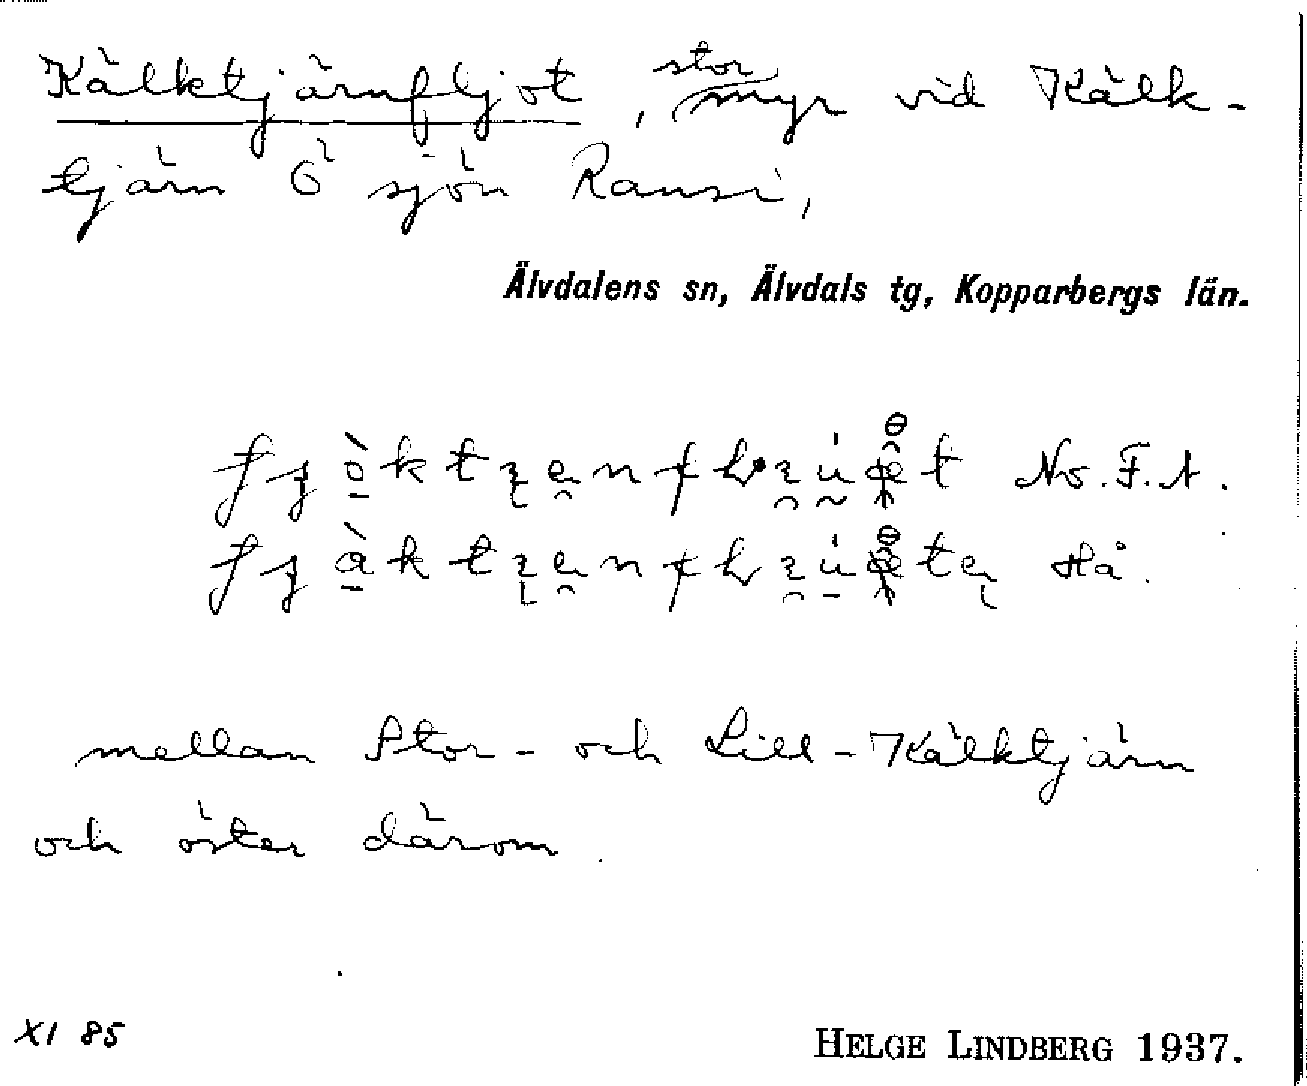 Kälktjärnfljot, stor myr vid Kälk-
tjärn Ö sjön Ransi,
Älvdalens sn, Älvdals tg, Kopparbergs län.
No. F. A.
Hå.
mellan Stor- och Lill-Kälktjärn
och öster därom.
XI 85
HELGE LINDBERG 1937.